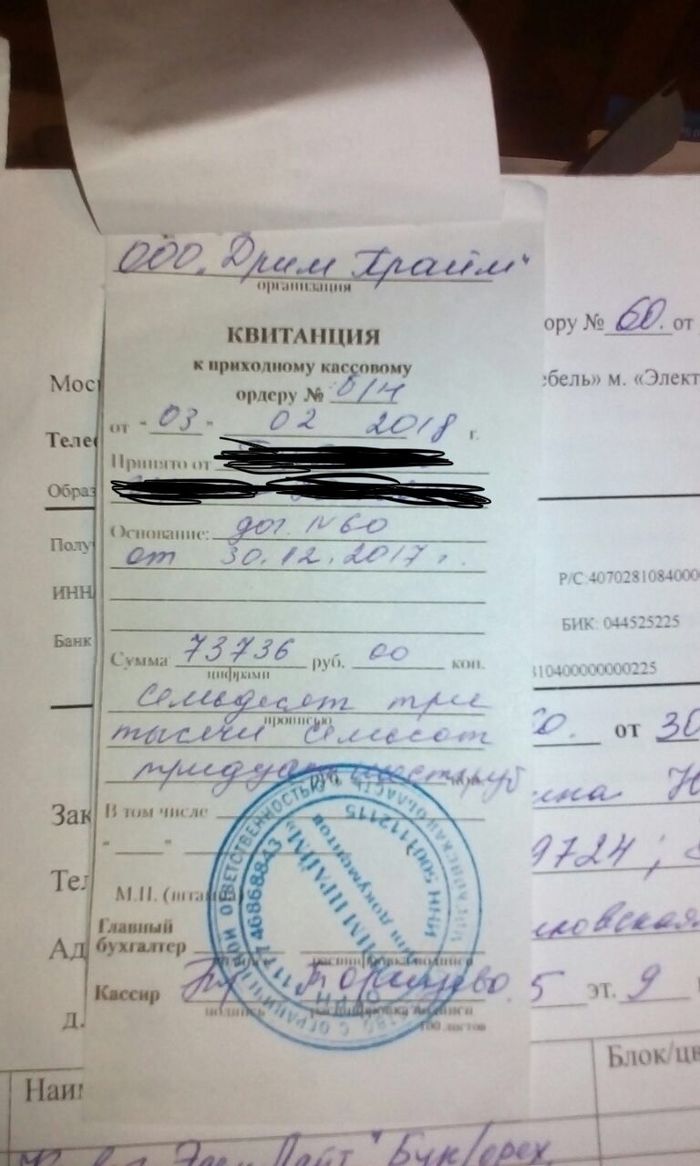 ООО „Дрим Прайм"
организация
КВИТАНЦИЯ
к приходному кассовому
ордеру № б/н
от "03" 02 2018 г.
Принято от
Основание: дог. N60
от 30.12.2017 г.
Сумма 73736 руб. 00 коп.
цифрами
Семьдесят три
прописью
тысячи семьсот
тридцать шесть руб
В том числе
"
М.П. (штампа)
Главный
бухгалтер
подпись расшифровка подписи
Кассир
подпись расшифровка подписи
100 листов
ору № 60. от
ебель» м. «Элект
Р/С:4070281084000
БИК: 044525225
810400000000225
60. от 30
ина Н
9724; 8
ковская
5 эт. 9
Блок/цв
Мос
Теле
Образ
Полу
ИНН
Банк
Зак
Тел
Ад
д.
Наим
Лайт" Бук/орех
ОГРН 1177746868843
ИНН 5007112115
ДРИМ ПРАЙМ
для документов
ОБЩЕСТВО С ОГРАНИЧЕННОЙ ОТВЕТСТВЕННОСТЬЮ
МОСКОВСКАЯ ОБЛАСТЬ